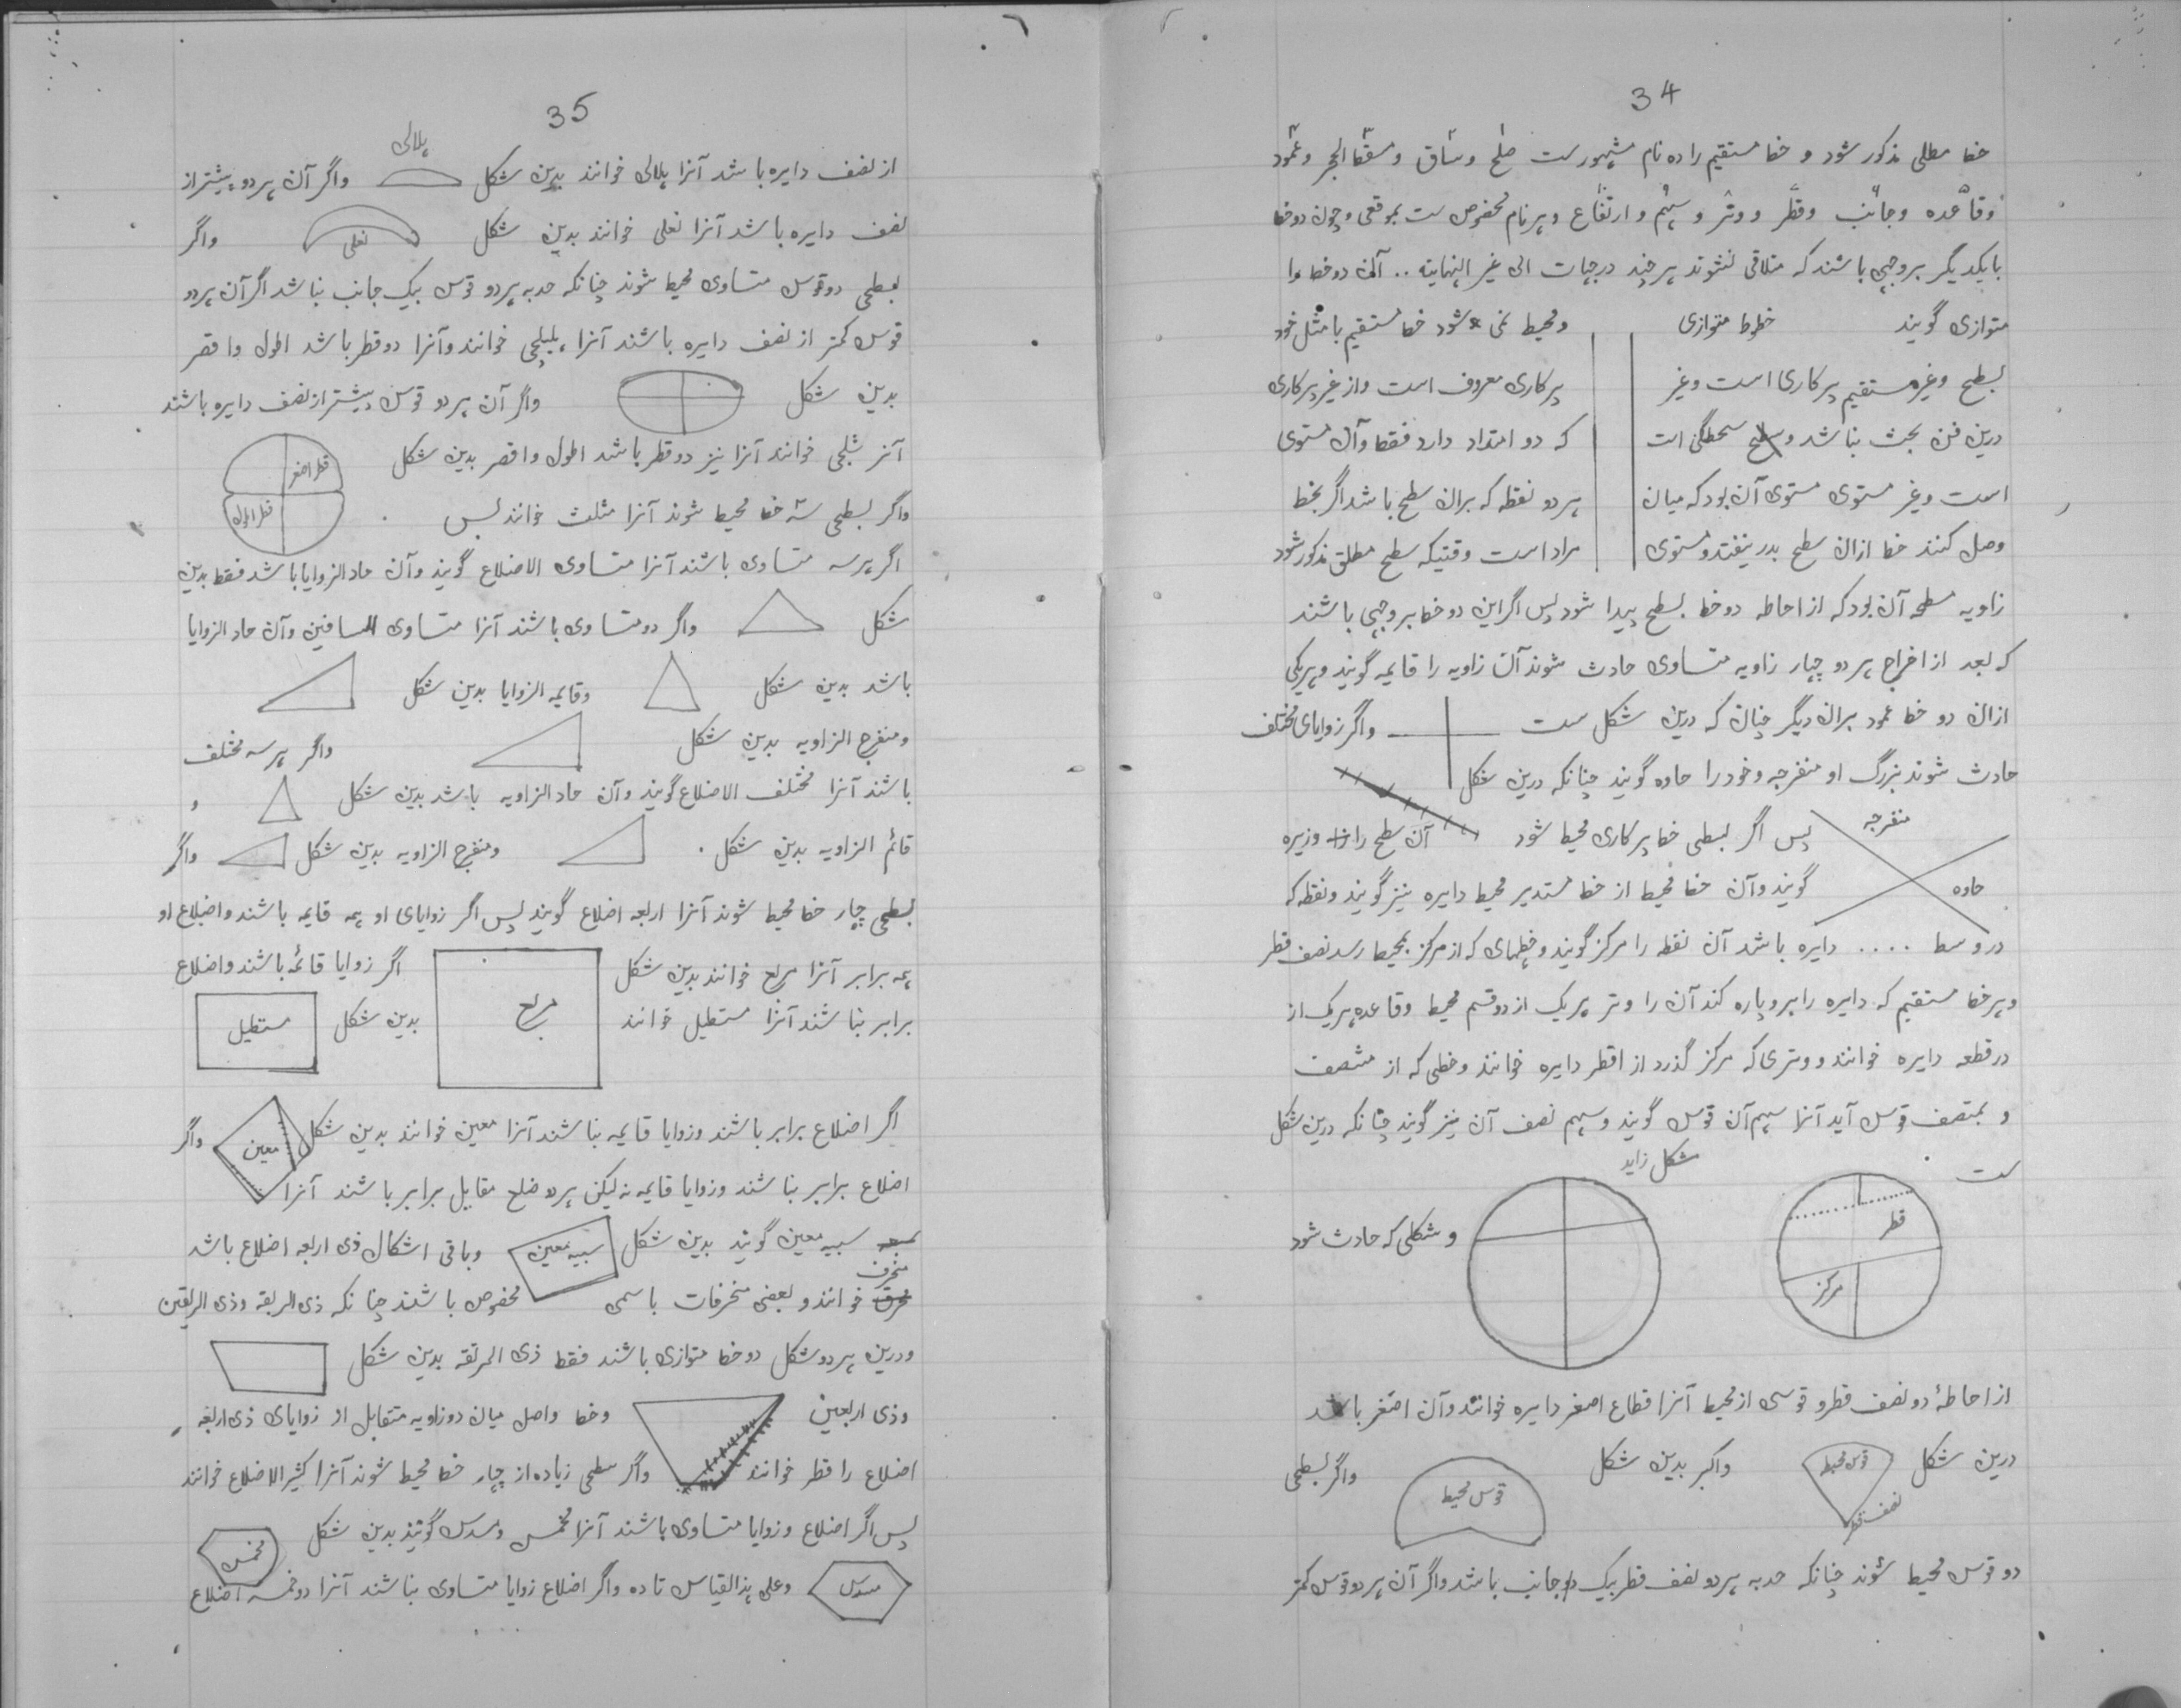 34
خط مطلی مذکور شود و خط مستقیم را ده نام مشهورست ضلع و ساق و مسقط الحجر و عمود
و قاعده و جانب و قطر و وتر و سهم و ارتفاع و هر نام مخصوص ست بموقعی و چون دو خط
با یکدیگر بروجهی باشند که متلاقی نشوند هر چند درجهات الی غیر النهایة .. آن دو خط را
متوازی گویند خطوط متوازی و محیط نمی شود خط مستقیم با مثل خود
بسطح و غیر مستقیم پرکاری است و غیر پرکاری معروف است و از غیر پرکاری
درین فن بحث نباشد و سطح است که دو امتداد دارد فقط و آن مستوی
است و غیر مستوی مستوی آن بود که میان هر دو نقطه که بران سطح باشد اگر بخط
وصل کنند خط ازان سطح بدر نیفتد و مستوی مراد است وقتیکه سطح مطلق مذکور شود
زاویه مسطحه آن بود که از احاطه دو خط بسطح پیدا شود پس اگر این دو خط بروجهی باشند
که بعد از اخراج هر دو چهار زاویه متساوی حادث شوند آن زاویه را قایمه گویند و هریکی
ازان دو خط عمود بران دیگر چنان که درین شکل ست واگر زوایای مختلف
حادث شوند بزرگ او منفرجه و خود را حاده گویند چنانکه درین شکل
منفرجه
حاده
پس اگر بسطی خط پرکاری محیط شود آن سطح را
گویند و آن خط محیط از خط مستدیر محیط دایره نیز گویند و نقطه که
در وسط .... دایره باشد آن نقطه را مرکز گویند و خطهای که از مرکز بمحیط رسد نصف قطر
و هر خط مستقیم که دایره را ببرد پاره کند آن را وتر هر یک از دو قسم محیط و قاعده هر یک از
در قطعه دایره خوانند و وتری که مرکز گذرد از اقطر دایره خوانند و خطی که از منتصف
و بمنتصف قوس آید آنرا سهم آن قوس گویند و سهم نصف آن نیز گویند چنانکه درین شکل
ست
شکل زاید
قطر
مرکز
و شکلی که حادث شود
از احاطهٔ دو نصف قطر و قوسی از محیط آنرا قطاع اصغر دایره خوانند و آن اصغر باشد
درین شکل قوس محیط نصف قطر واکبر بدین شکل قوس محیط واگر بسطحی
دو قوس محیط شوند چنانکه حدبه هر دو نصف قطر بیک جانب باشد واگر آن هر دو قوس کمتر
35
هلالی
از نصف دایره باشد آنرا هلالی خوانند بدین شکل واگر آن هر دو بیشتر از
نصف دایره باشد آنرا نعلی خوانند بدین شکل نعلی واگر
بسطحی دو قوس متساوی محیط شوند چنانکه حدبه هر دو قوس بیک جانب نباشد اگر آن هر دو
قوس کمتر از نصف دایره باشند آنرا هلیلجی خوانند و آنرا دو قطر باشد اطول و اقصر
بدین شکل واگر آن هر دو قوس بیشتر از نصف دایره باشند
آنر شلجمی خوانند آنرا نیز دو قطر باشد اطول و اقصر بدین شکل
قطر اصغر
قطر اطول
واگر بسطحی سه خط محیط شوند آنرا مثلث خوانند پس
اگر هر سه متساوی باشند آنرا متساوی الاضلاع گویند و آن حاد الزوایا باشد فقط بدین
شکل واگر دو متساوی باشند آنرا متساوی الساقین و آن حاد الزوایا
باشد بدین شکل وقایمه الزوایا بدین شکل
ومنفرج الزاویه بدین شکل واگر هر سه مختلف
باشند آنرا مختلف الاضلاع گویند و آن حاد الزاویه باشد بدین شکل و
قائم الزاویه بدین شکل ومنفرج الزاویه بدین شکل واگر
بسطحی چهار خط محیط شوند آنرا اربعه اضلاع گویند پس اگر زوایای او همه قایمه باشند و اضلاع او
همه برابر آنرا مربع خوانند بدین شکل مربع اگر زوایا قائمه باشند و اضلاع
برابر نباشند آنرا مستطیل خوانند بدین شکل مستطیل
اگر اضلاع برابر باشند و زوایا قایمه نباشند آنرا معین خوانند بدین شکل معین واگر
اضلاع برابر نباشند و زوایا قایمه نه لیکن هر دو ضلع مقابل برابر باشند آنرا
شبیه معین گویند بدین شکل شبیه معین وباقی اشکال ذی اربعه اضلاع باشد
منحرف
خوانند و بعضی منحرفات باسمی مخصوص باشند چنانکه
ودرین هر دو شکل دو خط متوازی باشند فقط بدین شکل
وخط واصل میان دو زاویه متقابل از زوایای ذی اربعه
اضلاع را قطر خوانند واگر سطحی زیاده از چهار خط محیط شوند آنرا کثیر الاضلاع خوانند
پس اگر اضلاع و زوایا متساوی باشند آنرا مخمس و مسدس گویند بدین شکل مخمس
مسدس وعلی هذا القیاس تا ده واگر اضلاع زوایا متساوی نباشند آنرا ذو خمسه اضلاع